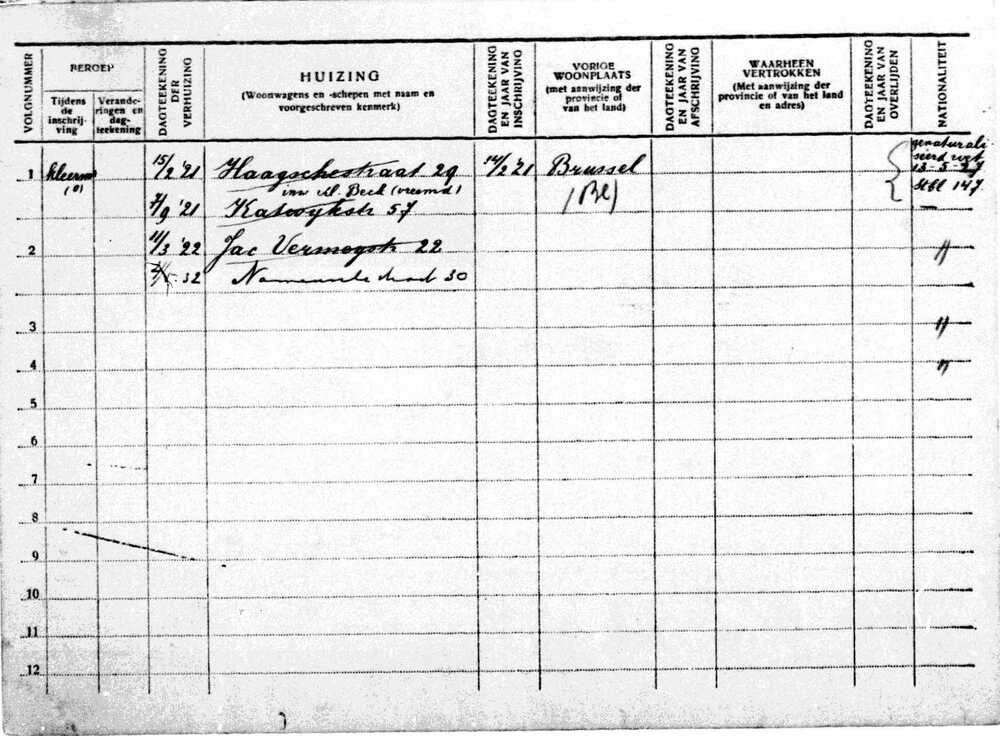 VOLGNUMMER
BEROEP
Tijdens de inschrijving
Veranderingen en dagteekening
DAGTEEKENING DER VERHUIZING
HUIZING
(Woonwagens en -schepen met naam en
voorgeschreven kenmerk)
DAGTEEKENING EN JAAR VAN INSCHRIJVING
VORIGE
WOONPLAATS
(met aanwijzing der
provincie of
van het land)
DAGTEEKENING EN JAAR VAN AFSCHRIJVING
WAARHEEN
VERTROKKEN
(Met aanwijzing der
provincie of van het land
en adres)
DAGTEEKENING EN JAAR VAN OVERLIJDEN
NATIONALITEIT
genaturali
seerd wet
13-5-27
Stbl 147
1 15/2 '21 Haagschestraat 29 14/2 '21 Brussel
inw M. Beck (vreemd) (Be)
7/9 '21 Katwijkstr 57
2 11/3 '22 Jac Vermeystr 22 "
32 30
3 "
4 "
5
6
7
8
9
10
11
12